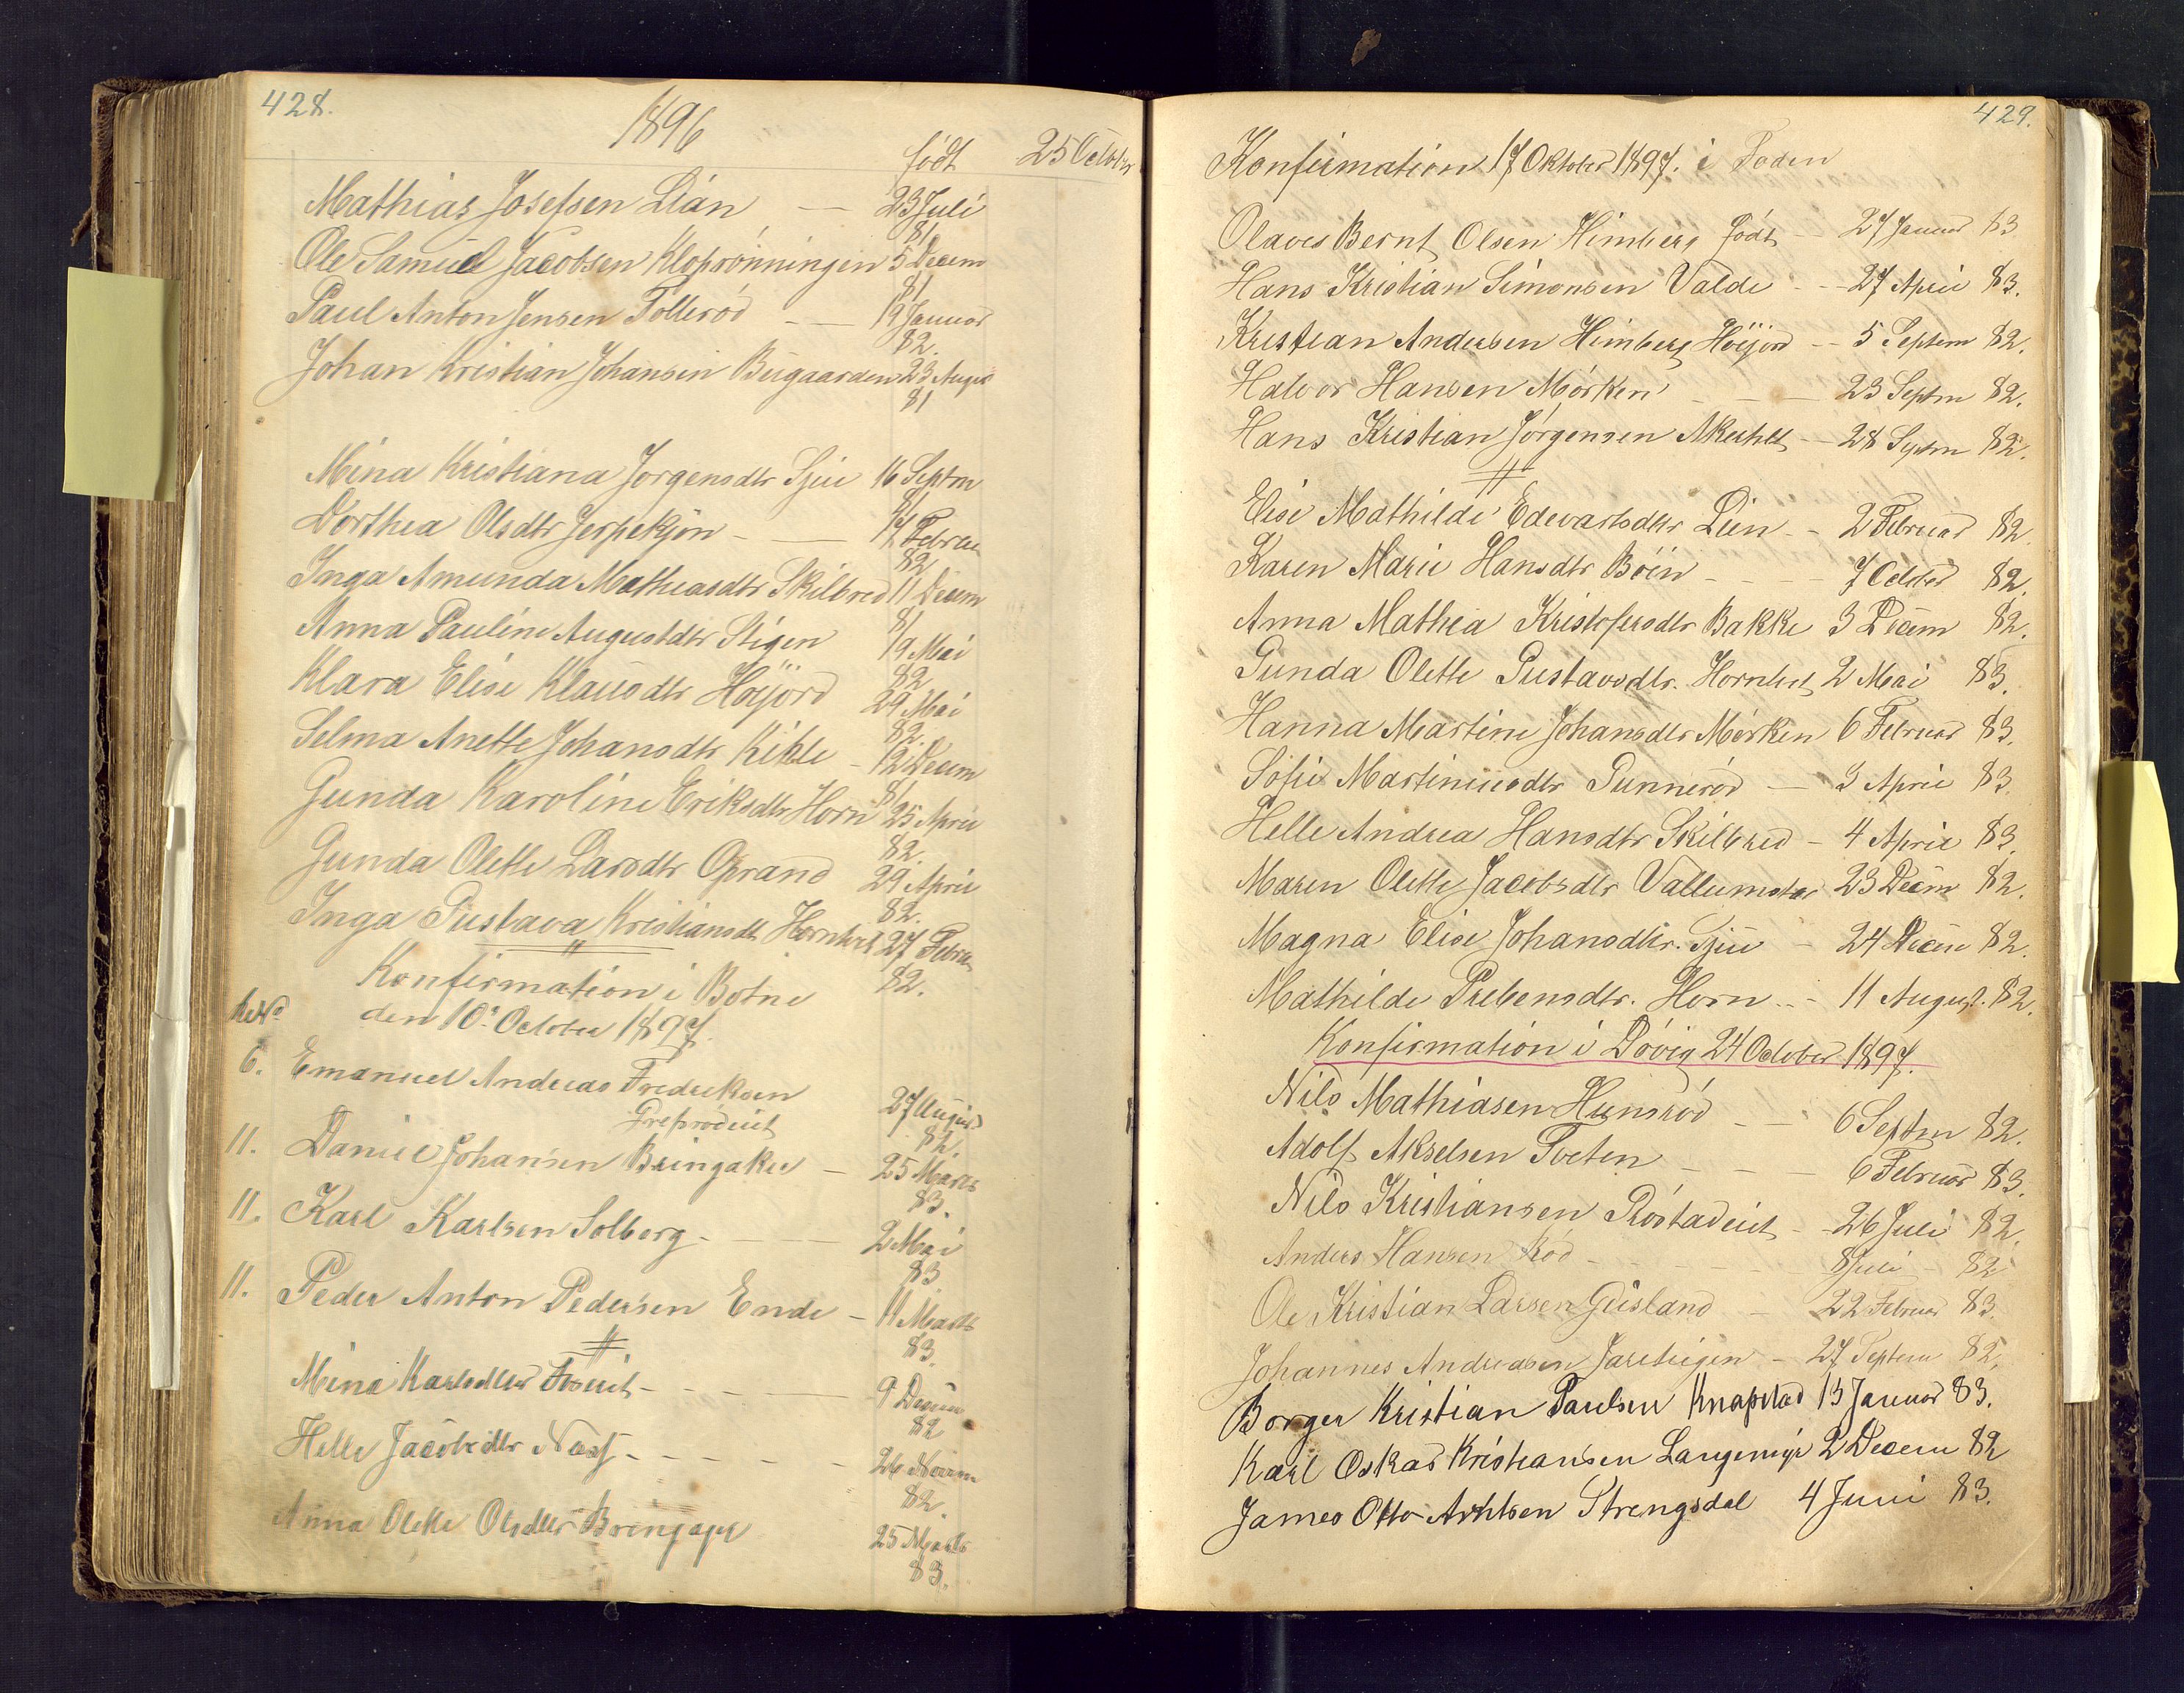 428.
1896
født 25 October
Mathias Josefsen Lian — 23 Juli
81
Ole Samuel Jacobsen Kloprønningen 5 Decem
81
Paul Anton Jensen Tollerød — 19 Januar
82.
Johan Kristian Johansen Bugaarden 23 August
81
Mina Kristiana Jørgensdtr Sjue 16 Septm
81
Dorthea Olsdtr Jerpekjøn — 14 Februa
82
Inga Amunda Mathiasdtr Skilbred 11 Decem
81
Anna Pauline Augustdtr Stigen 19 Mai
82
Klara Elise Klausdtr Høijord 29 Mai
82.
Selma Anette Johansdtr Kihle — 12 Decem
81
Gunda Karoline Eriksdtr Horn 25 April
82.
Gunda Olette Larsdtr Oprand 29 April
82.
Inga Gustava Kristiansdt Hornhvet 27 Februa
82.
Konfirmation i Botne
den 10de October 1897.
6. Emanuel Andreas Fredriksen 27 August
82.
11. Daniel Johansen Bringaker — 25 Marts
83.
11. Karl Karlsen Solberg — 2 Mai
83
11. Peder Anton Pedersen Ende — 11 Marts
83.
Mina Karlsdtr — 9 Decem
82
Helle Jacobsdtr Næss — 26 Novem
82.
Anna Olette Olsdtr 25 Marts
83.
429.
Konfirmation 17 Oktober 1897. i Foden
Olaves Bernt Olsen Himberg født — 27 Januar 83
Hans Kristian Simonsen Valde — 27 April 83.
Kristian Andersen Himberg Høijord — 5 Septem 82.
Halvor Hansen Mørken — 23 Septm 82.
Hans Kristian Jørgensen — 28 Septm 82.
Elise Mathilde Edevartsdtr Lien — 2 Februar 82.
Karen Marie Hansdtr Bøen — 7 October 82.
Anna Mathea Kristofersdtr Bakke 3 Decem 82.
Gunda Olette Gustavsdtr. Hornhvet 2 Mai 83.
Hanna Martine Johansdtr Mørken 6 Februar 83.
Sofie Martiniusdtr Gunnerød — 3 April 83.
Helle Andrea Hansdtr Skilbred — 4 April 83.
Maren Olette Jacobsdtr Vallumstør 23 Decm 82.
Magna Elise Johansdtr. Sjue — 24 Decem 82.
Mathilde Prebensdtr. Horn — 11 August. 82.
Konfirmation i Løvig 24 October 1897.
Nils Mathiasen Hunsrød — 6 Septm 82.
Adolf Akselsen Tveten — 6 Februar 83.
Nils Kristiansen — 26 Juli 82.
Anders Hansen Rød — 8 Juli — 82
Ole Kristian Larsen Gusland — 22 Februar 83.
Johannes Andreasen — 27 Septem 82.
Borger Kristian Paulsen Knapstad 13 Januar 83.
Karl Oskar Kristiansen Langemyr 2 Decem 82
James Otto Arntsen Strengsdal 4 Juni 83.